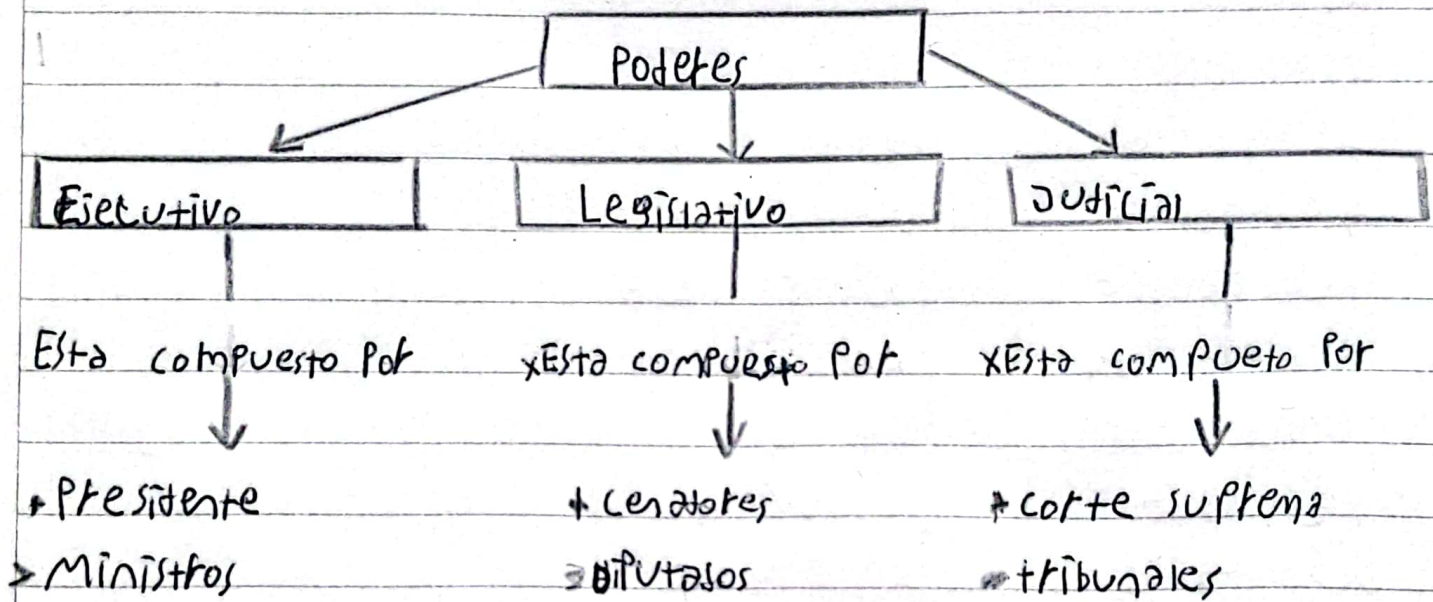 Poderes
Ejecutivo
Legislativo
Judicial
Esta compuesto por
xEsta compuesto por
xEsta compueto por
Presidente
Ministros
cenadores
Diputados
corte suprema
tribunales